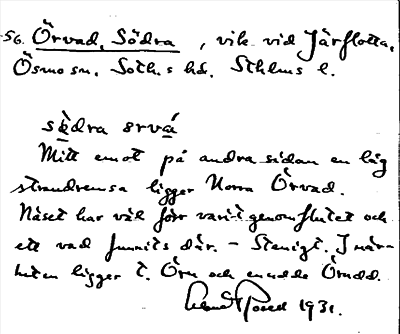 56. Örvad, Södra, vik vid Järflotta,
Ösmo sn. Soth.s hd. Sthlms l.
sǝ̀dra ɜrvá
Mitt emot på andra sidan en låg
strandremsa ligger Norra Örvad.
Näset har väl förr varit genomflutet och
ett vad funnits där. – Stenigt. I när-
heten ligger t. Örn och en udde Örudd.
1931.